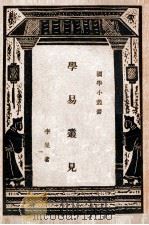 國學小叢書
學易叢見
李星可著